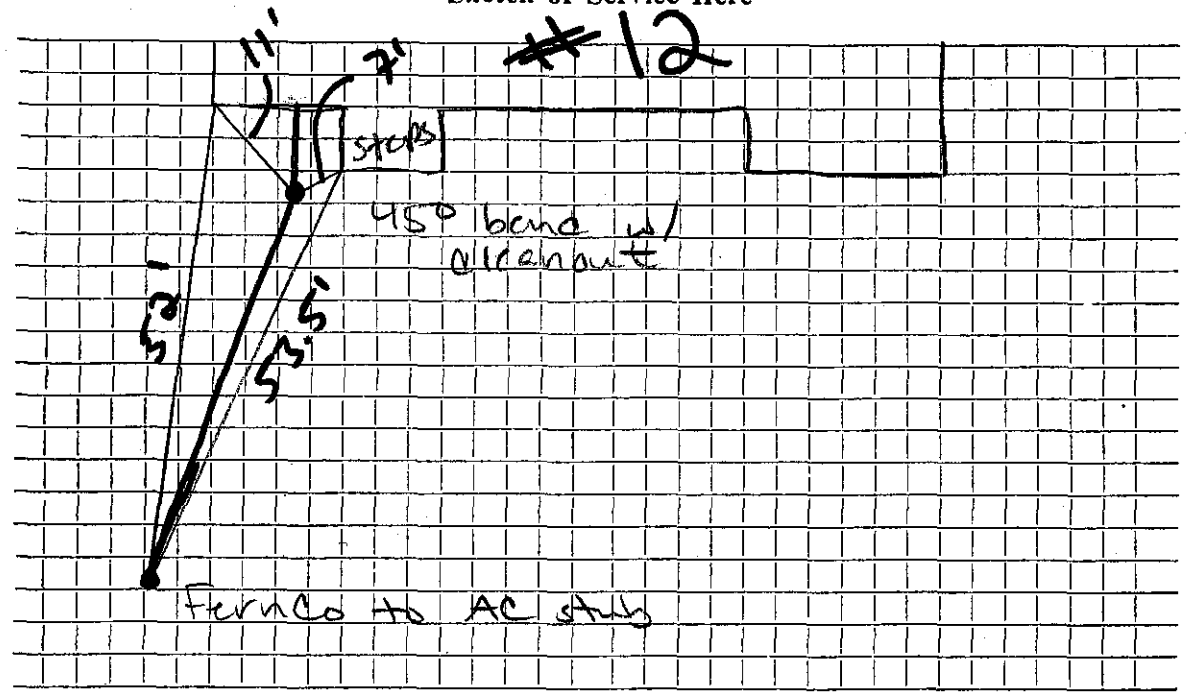 Sketch of Service Here
11'
7'
# 12
steps
45° bend w/
cleanout
52'
53.5'
Fernco to AC stub